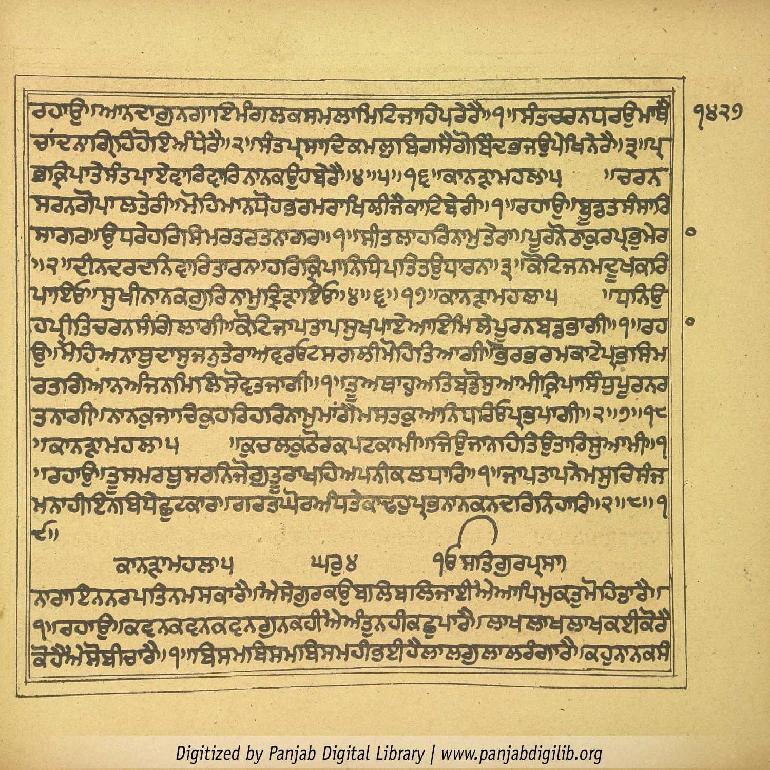 ਰਹਾਉ॥ਆਨਦਾਗੁਨਗਾਇਮੰਗਲਕਸਮਲਾਮਿਟਿਜਾਹਿਪਰੇਰੈ॥੧॥ਸੰਤਚਰਨਧਰਉਮਾਥੈ
੧੪੨੭
ਚਾਂਦਨਾਗ੍ਰਿਹਿਹੋਇਅੰਧੇਰੈ॥੨॥ਸੰਤਪ੍ਰਸਾਦਿਕਮਲੁਬਿਗਸੈਗੋਬਿੰਦਭਜਉਪੇਖਿਨੇਰੈ॥੩॥ਪ੍ਰ
ਭਕ੍ਰਿਪਾਤੇਸੰਤਪਾਏਵਾਰਿਵਾਰਿਨਾਨਕਉਹਬੇਰੈ॥੪॥੫॥੧੬॥ਕਾਨੜਾਮਹਲਾ੫ ॥ਚਰਨ
ਸਰਨਗੋਪਾਲਤੇਰੀ॥ਮੋਹਿਮਾਨਧੋਹਭਰਮਰਾਖਿਲੀਜੈਕਾਟਿਬੇਰੀ॥੧॥ਰਹਾਉ॥ਬੂਡਤਸੰਸਾਰ
ਸਾਗਰ॥ਉਧਰੇਹਰਿਸਿਮਰਤਰਤਨਾਗਰ॥੧॥ਸੀਤਲਾਹਰਿਨਾਮੁਤੇਰਾ॥ਪੂਰਨੋਠਾਕੁਰਪ੍ਰਭੁਮੇਰ
॥੨॥ਦੀਨਦਰਦਨਿਵਾਰਿਤਾਰਨ॥ਹਰਿਕ੍ਰਿਪਾਨਿਧਿਪਤਿਤਉਧਾਰਨ॥੩॥ਕੋਟਿਜਨਮਦੂਖਕਰਿ
ਪਾਇਓ॥ਸੁਖੀਨਾਨਕਗੁਰਿਨਾਮੁਦ੍ਰਿੜਾਇਓ॥੪॥੬॥੧੭॥ਕਾਨੜਾਮਹਲਾ੫ ॥ਧਨਿਉ
ਹਪ੍ਰੀਤਿਚਰਨਸੰਗਿਲਾਗੀ॥ਕੋਟਿਜਾਪਤਾਪਸੁਖਪਾਏਆਇਮਿਲੇਪੂਰਨਬਡਭਾਗੀ॥੧॥ਰਹ
ਉ॥ਮੋਹਿਅਨਾਥੁਦਾਸੁਜਨੁਤੇਰਾਅਵਰਓਟਸਗਲੀਮੋਹਿਤਿਆਗੀ॥ਭੋਰਭਰਮਕਾਟੇਪ੍ਰਭਸਿਮ
ਰਤਗਿਆਨਅੰਜਨਮਿਲਿਸੋਵਤਜਾਗੀ॥੧॥ਤੂਅਥਾਹੁਅਤਿਬਡੋਸੁਆਮੀਕ੍ਰਿਪਾਸਿੰਧੁਪੂਰਨਰ
ਤਨਾਗੀ॥ਨਾਨਕੁਜਾਚਕੁਹਰਿਹਰਿਨਾਮੁਮਾਂਗੈਮਸਤਕੁਆਨਿਧਰਿਓਪ੍ਰਭਪਾਗੀ॥੨॥੭॥੧੮
॥ਕਾਨੜਾਮਹਲਾ੫ ॥ਕੁਚਲਕਠੋਰਕਪਟਕਾਮੀ॥ਜਿਉਜਾਨਹਿਤਿਉਤਾਰਿਸੁਆਮੀ॥੧
॥ਰਹਾਉ॥ਤੂਸਮਰਥੁਸਰਨਿਜੋਗੁਤੂਰਾਖਹਿਅਪਨੀਕਲਧਾਰਿ॥੧॥ਜਾਪਤਾਪਨੇਮਸੁਚਿਸੰਜ
ਮਨਾਹੀਇਨਬਿਧੇਛੁਟਕਾਰ॥ਗਰਤਘੋਰਅੰਧਤੇਕਾਢਹੁਪ੍ਰਭਨਾਨਕਨਦਰਿਨਿਹਾਰਿ॥੨॥੮॥੧
੯॥
ਕਾਨੜਾਮਹਲਾ੫ ਘਰੁ੪ ੴਸਤਿਗੁਰਪ੍ਰਸਾ
ਨਾਰਾਇਨਨਰਪਤਿਨਮਸਕਾਰੈ॥ਐਸੇਗੁਰਕਉਬਲਿਬਲਿਜਾਈਐਆਪਿਮੁਕਤੁਮੋਹਿਤਾਰੈ॥
੧॥ਰਹਾਉ॥ਕਵਨਕਵਨਕਵਨਗੁਨਕਹੀਐਅੰਤੁਨਹੀਕਛੁਪਾਰੈ॥ਲਾਖਲਾਖਲਾਖਕਈਕੋਰੈ
ਕੋਹੈਐਸੋਬੀਚਾਰੈ॥੧॥ਬਿਸਮਬਿਸਮਬਿਸਮਹੀਭਈਹੈਲਾਲਗੁਲਾਲਰੰਗਾਰੈ॥ਕਹੁਨਾਨਕਸੰ
Digitized by Panjab Digital Library | www.panjabdigilib.org